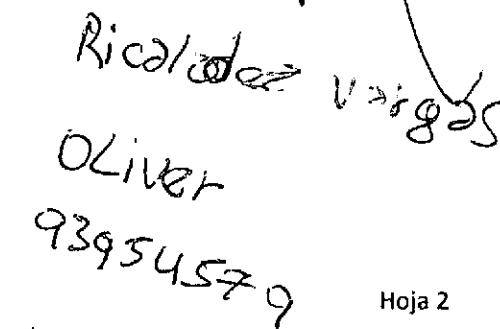 Ricaldez Vargas
Oliver
93954579
Hoja 2